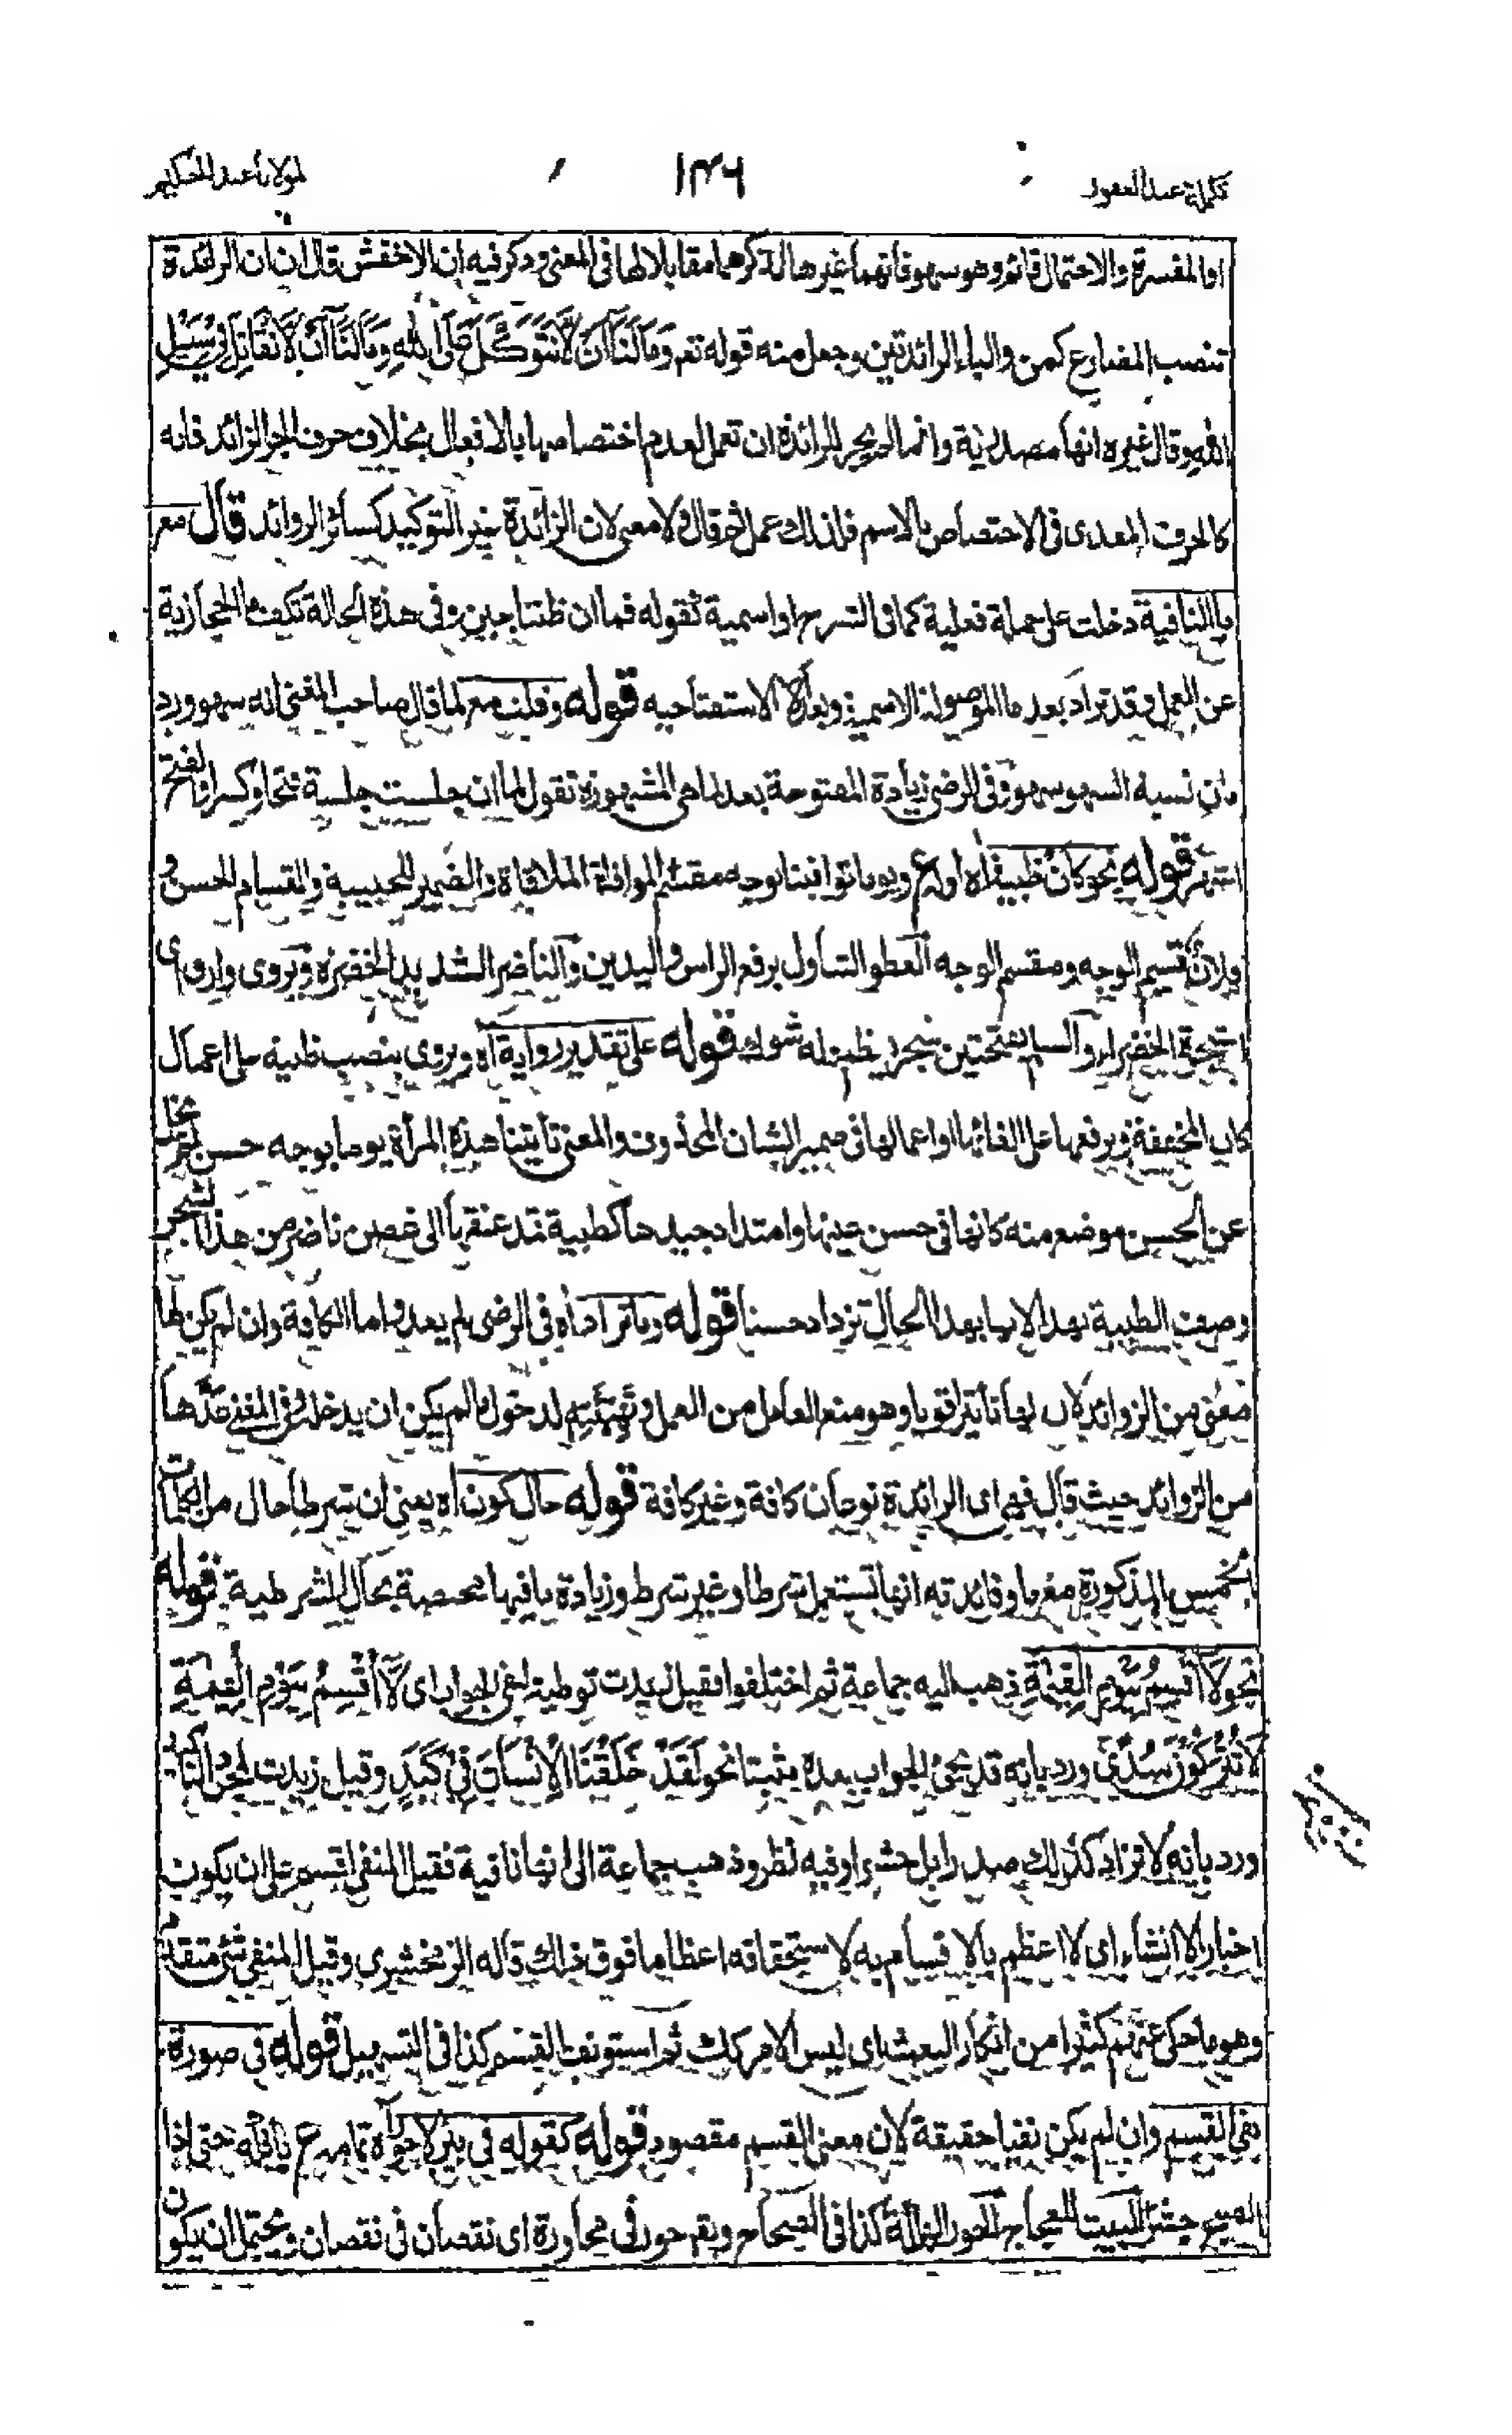 تكملة عبد الغفور ١٣٦ لمولانا عبد الحكيم
او المفسرة والاحتمال قائم وهو سهو فانهما غيرها لذكرهما مقابلا لها فى المعنى وذكر فيه ان الاخفش قال ان ان الزائدة
تنصب المضارع كمن والباء الزائدتين وجعل منه قوله تعم وَمَا لَنَا اَنْ لَا نَتَوَكَّلَ عَلَى اللهِ وَمَا لَنَا اَنْ لَا نُقَاتِلَ فِى سَبِيْلِ
اللهِ وقال غيره انها مصدرية وانما لم يجز للزائدة ان تعمل لعدم اختصاصها بالافعال بخلاف حرف الجر الزائد فانه
كالحرف المعدى فى الاختصاص بالاسم فلذلك عمل فيه قال ولا معنى لان الزائدة غير التوكيد كسائر الزوائد قال مع
ما النافية دخلت على جملة فعلية كما فى الشرح او اسمية كقوله فما ان طبنا جبن وفى هذه الحالة تكف ما الحجازية
عن العمل وقد تزاد بعد ما الموصولة الاسمية وبعد الا الاستفتاحيه قوله وقلت مع لما قال صاحب المغنى انه سهو ورد
بان نسبة السهو سهو وفى الرضى زيادة المفتوحة بعد لما هى المشهورة تقول لما ان جلست جلست فتحا وكسرا والفتح
اشهر قوله نحو كان ظبية اه اوله ع ويوما توافينا بوجه مقسّم الموافاة الملاقاة والضمير للحبيبة والقسام الحسن و
فلان قسيم الوجه ومقسم الوجه العطو التناول برفع الراس واليدين والناضر الشديد الخضرة ويروى وارق اى
شجرة الخضراء والسلم بفتحتين شجر يظم له شوك قوله على تقدير رواية اه ويروى بنصب ظبية على اعمال
كان المخففة وبرفعها على الغائها او اعمالها فى ضمير الشان المحذوف والمعنى تأتينا هذه المرأة يوما بوجه حسن
عن الحسن موضع منه كانها فى حسن عينها وامتداد جيدها كظبية تمد عنقها الى غصن ناضر من هذا الشجر
وصف الظبية بهذا لانها بهذا الحال تزداد حسنا قوله وما تزاد اه فى الرضى لم يعدوا ما الكافة وان لم يكن لها
معنى من الزوائد لان لها تأثيرا قويا وهو منع العامل من العمل وتهيئته لدخول ما لم يكن ان يدخله وفى المغنى عدّها
من الزوائد حيث قال فيه اى الزائدة نوعان كافة وغير كافة قوله حال كون اه يعنى ان شرطا حال من الكلمات
الخمس المذكورة مع ما وفايدته انها تستعمل شرطا وغير شرط وزيادة ما فيها مختصة بحال الشرطية قوله
نحو لَا اُقْسِمُ بِيَوْمِ الْقِيٰمَةِ ذهب اليه جماعة ثم اختلفوا فقيل زيدت توطية لنفى الجواب اى لَا اُقْسِمُ بِيَوْمِ الْقِيٰمَةِ
لَا تُتْرَكُوْنَ سُدًى ورد بانه قد يجئ الجواب بعده مثبتا نحو لَقَدْ خَلَقْنَا الْاِنْسَانَ فِىْ كَبَدٍ وقيل زيدت لمجرد التاكيد
ورد بانه لا تزاد كذلك صدرا بل حشوا وفيه نظر وذهب جماعة الى انها نافية فقيل المنفى اقسم على ان يكون
اخبارا لا انشاء اى لا اعظم بالاقسام به لاستحقاقه اعظاما فوق ذلك قاله الزمخشرى وقيل المنفى شئ متقدم
وهو ما حكى عنهم كثيرا من انكار البعث اى ليس الامر كك ثم استونف القسم كذا فى التسهيل قوله فى صورة
نفى القسم وان لم يكن نفيا حقيقة لان معنى القسم مقصود قوله كقوله فى بئر لا حور اه تمامه ع بافكه حتى اذا
الصبح جشر البيت للعجاج الحور الهلكة كذا فى الصحاح ويقم حور فى محاورة اى نقصان فى نقصان ويحتمل ان يكون